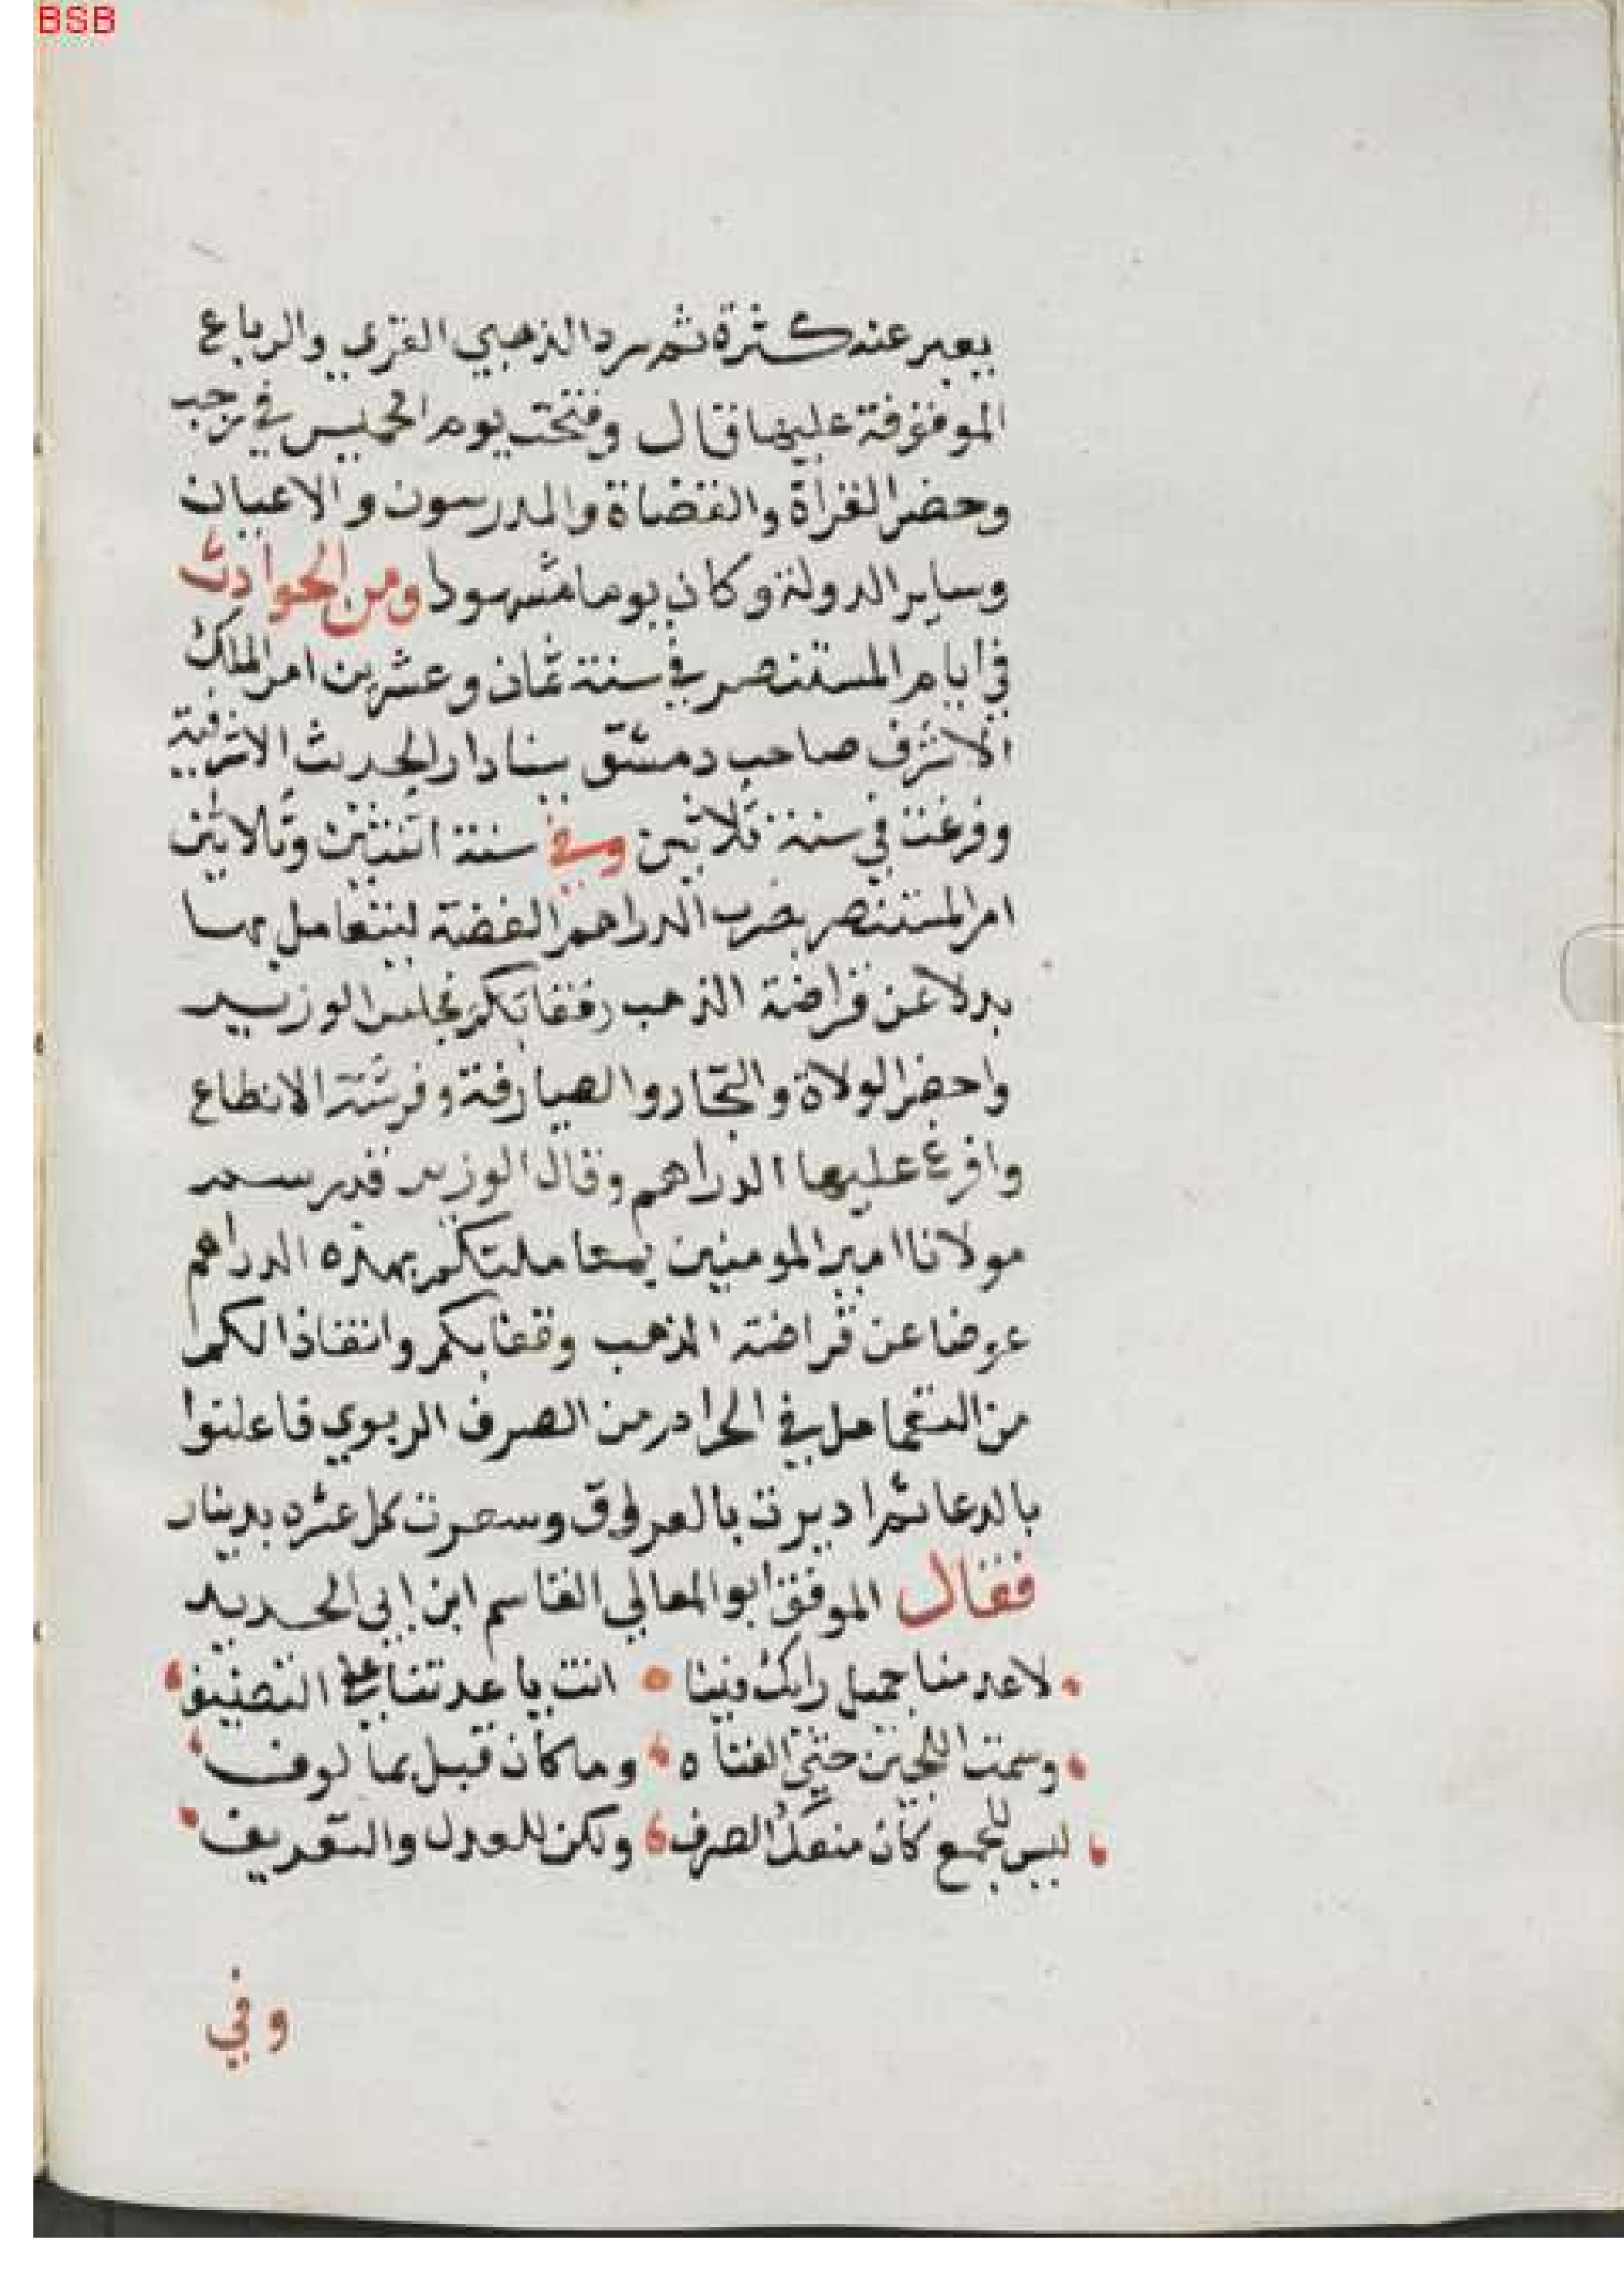 BSB
يعبر عنه كثرة ثم سرد الذهبي القري والرباع
الموقوفة عليها قال وفتحت يوم الخميس في رجب
وحضر القراة والقضاة والمدرسون والاعيان
وساير الدولة وكان يوما مشهودا ومن الحوادث
في ايام المستنصر في سنة ثمان وعشرين امر الملك
الاشرف صاحب دمشق ببنا دار الحديث الاشرفية
وفرغت في سنة ثلاثين وفي سنة اثنتين وثلاثين
امر المستنصر بضرب الدراهم الفضة ليتعامل بها
بدلا عن قراضة الذهب الوزير
واحضر الولاة والتجار والصيارفة وفرشت الانطاع
وافرغ عليها الدراهم وقال الوزير قد رسم
مولانا امير المومنين بمعاملتكم بهذه الدراهم
عوضا عن قراضة الذهب رفقا بكم وانقاذا لكم
من التعامل في الحرام من الصرف الربوي فاعلنوا
بالدعا ثم اديرت بالعراق وسعرت كل عشرة بدينار
فقال الموفق ابو المعالي القاسم ابن ابي الحديد
لا عدمنا جميل رايك فينا انت باعدتنا عن التطفيف
ورسمت اللجين حتى الفناه وما كان قبل بمالوف
ليس للجمع كان منعك الصرف ولكن للعدل والتعريف
وفي